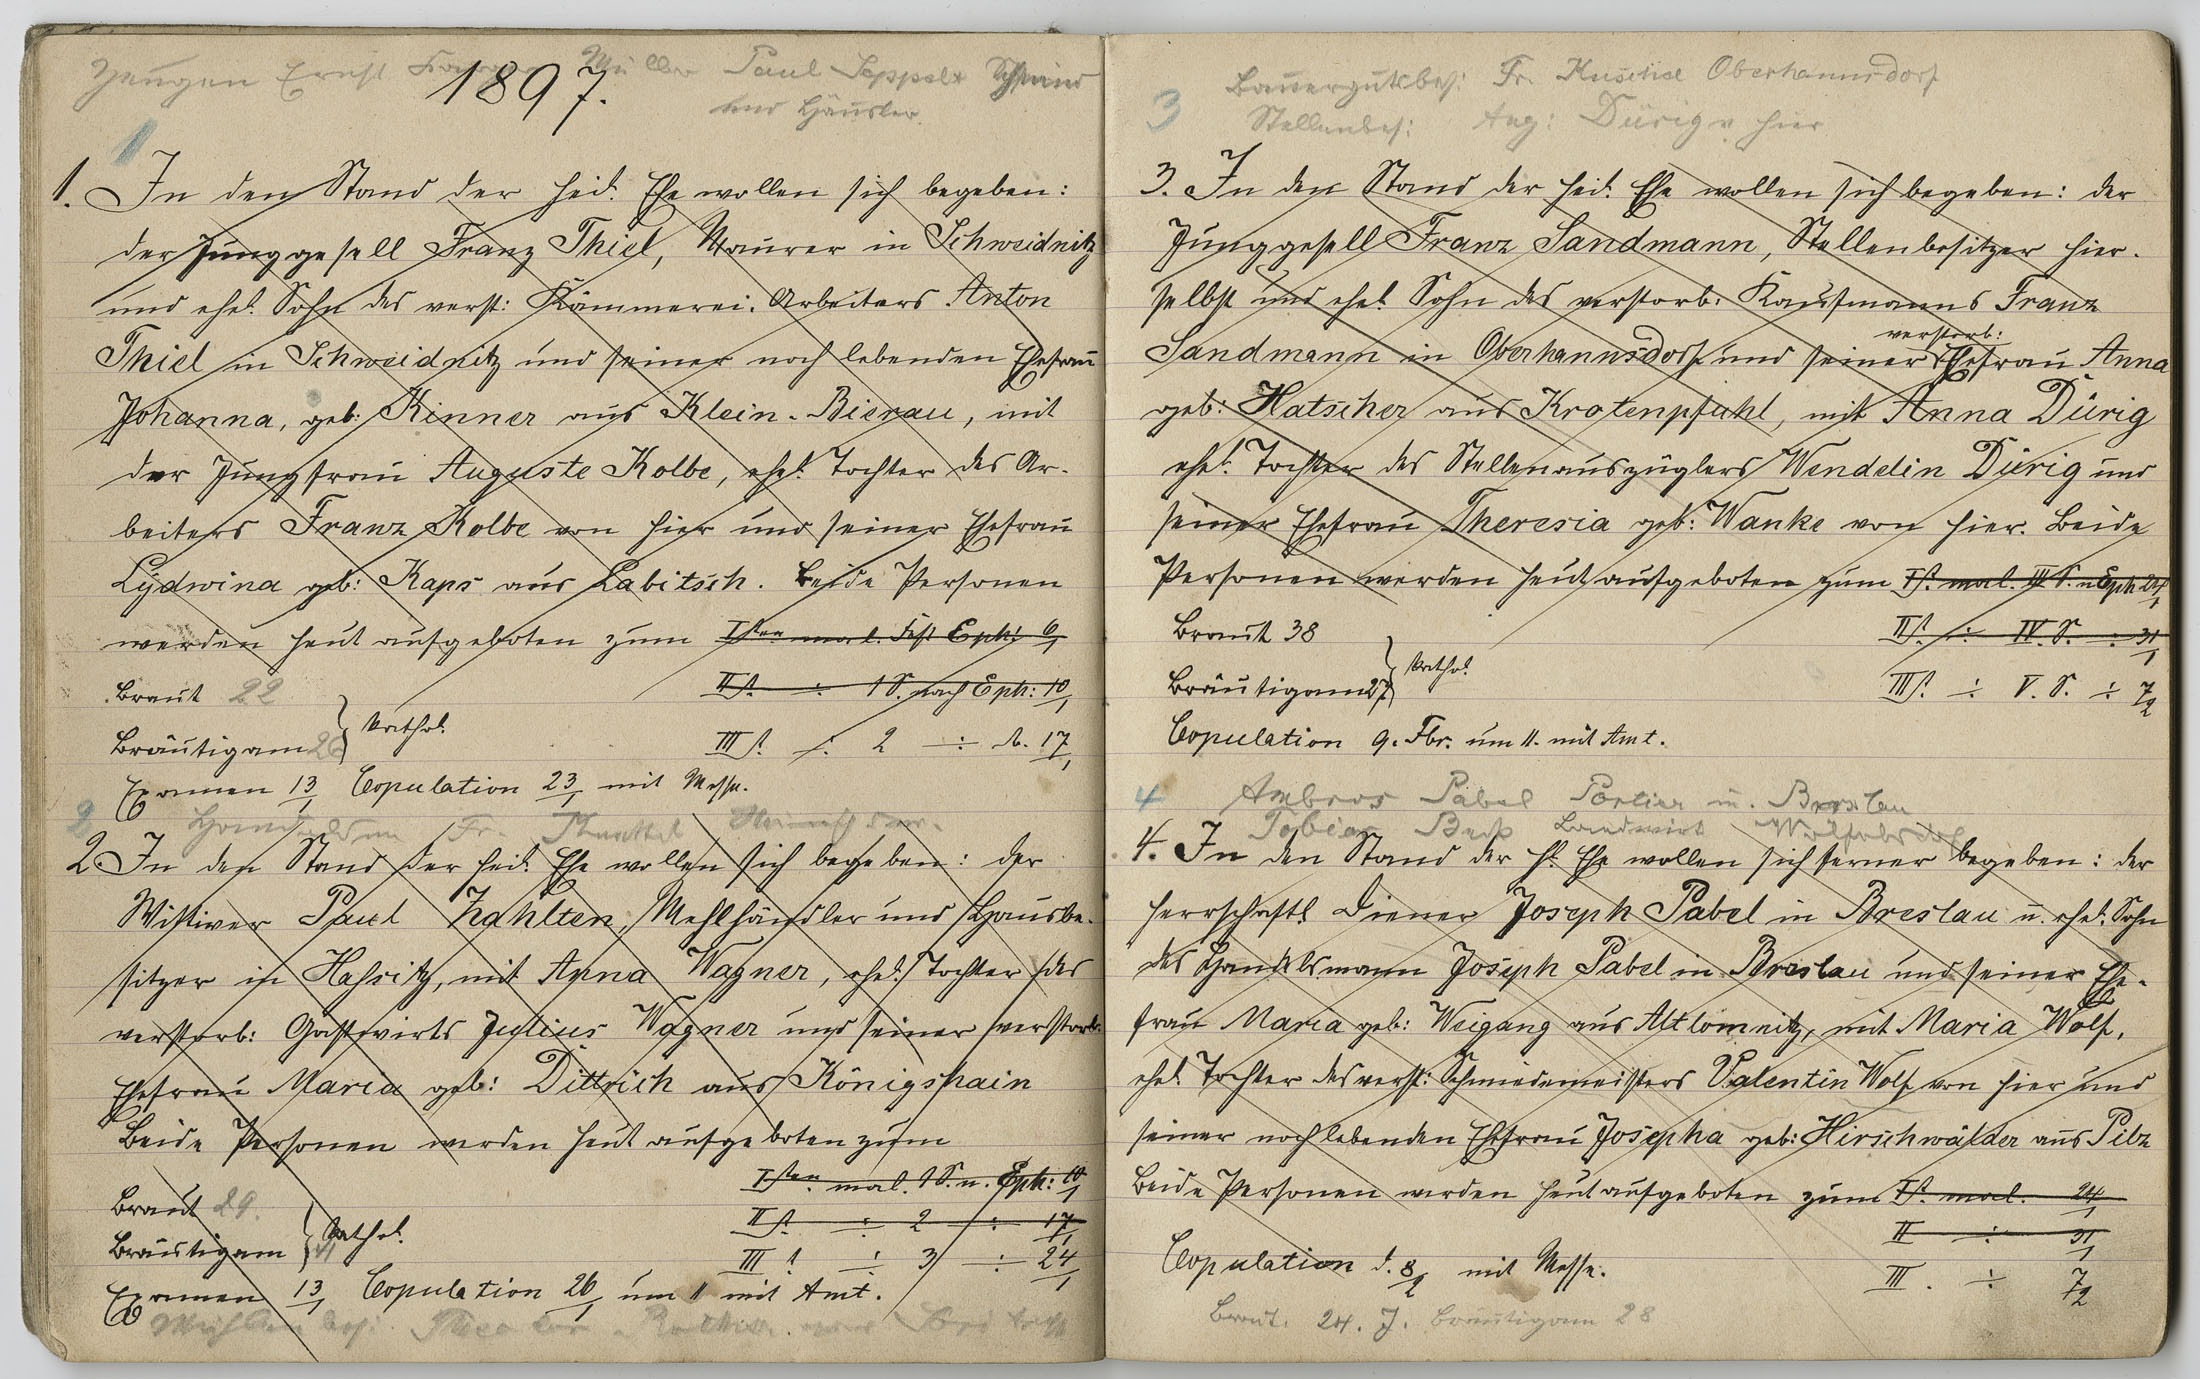 Zeugen Ernst Müller Paul Seppelt Schmied
1897.
und Häusler.
1
1. In den Stand der heil. Ehe wollen sich begeben:
der Junggesell Franz Thiel, Maurer in Schweidnitz
und ehel. Sohn des verst: Kämmerei-Arbeiters Anton
Thiel in Schweidnitz und seiner noch lebenden Ehefrau
Johanna, geb: Kinner aus Klein-Bierau, mit
der Jungfrau Auguste Kolbe, ehel. Tochter des Ar-
beiters Franz Kolbe von hier und seiner Ehefrau
Lydwina geb: Kaps aus Labitsch. Beide Personen
werden heut aufgeboten zum Isten mal. Fest Eph: 6/1
IIt. ÷ 1 S. nach Eph: 10/1
Braut 22
Bräutigam 26 } kathol.
IIIt. ÷ 2 ÷ d. 17/1
Examen 13/1 Copulation 23/1 mit Messe.
2 Fr.
2. In den Stand der heil. Ehe wollen sich begeben: der
Wittwer Paul Zahlten, Mehlhändler und Hausbe-
sitzer in Hassitz, mit Anna Wagner, ehel. Tochter des
verstorb: Gastwirts Julius Wagner und seiner verstorb.
Ehefrau Maria geb: Dittrich aus Königshain
Beide Personen werden heut aufgeboten zum
Isten mal. 1 S. n. Eph: 10/1
Braut 29.
IIt. ÷ 2 ÷ 17/1
Bräutigam 41 } kathol.
IIIt. ÷ 3 ÷ 24/1
Examen 13/1 Copulation 26/1 um 11 mit Amt.
Bauergutsbes: Fr. Kuschel Oberhannsdorf
3
Stellenbes: Aug: Dürig v. hier
3. In den Stand der heil. Ehe wollen sich begeben: der
Junggesell Franz Sandmann, Stellenbesitzer hier-
selbst und ehel. Sohn des verstorb: Kaufmanns Franz
verstorb:
Sandmann in Oberhannsdorf und seiner Ehefrau Anna
geb: Hatscher aus Krotenpfuhl, mit Anna Dürig
ehel. Tochter des Stellenauszüglers Wendelin Dürig und
seiner Ehefrau Theresia geb: Wanke von hier. Beide
Personen werden heut aufgeboten zum It. mal. III S. n Eph 24/1
Braut 38
IIt. ÷ IV. S. ÷ 31/1
Bräutigam 27 } kathol.
IIIt. ÷ V. S. ÷ 7/2
Copulation 9. Fbr. um 11. mit Amt.
4 Ambros Pabel Portier in Breslau
Landwirt
4. In den Stand der hl. Ehe wollen sich ferner begeben: der
herrschaftl Diener Joseph Pabel in Breslau u. ehel. Sohn
des Handelsmann Joseph Pabel in Breslau und seiner Ehe-
frau Maria geb: Weigang aus Altlomnitz, mit Maria Wolf,
ehel. Tochter des verst: Schmiedemeisters Valentin Wolf von hier und
seiner noch lebenden Ehefrau Josepha geb: Hirschwälder aus Pilz
Beide Personen werden heut aufgeboten zum It. mal. 24/1
II ÷ 31/1
Copulation d. 8/2 mit Messe.
III. ÷ 7/2
Braut. 24. J. Bräutigam 28